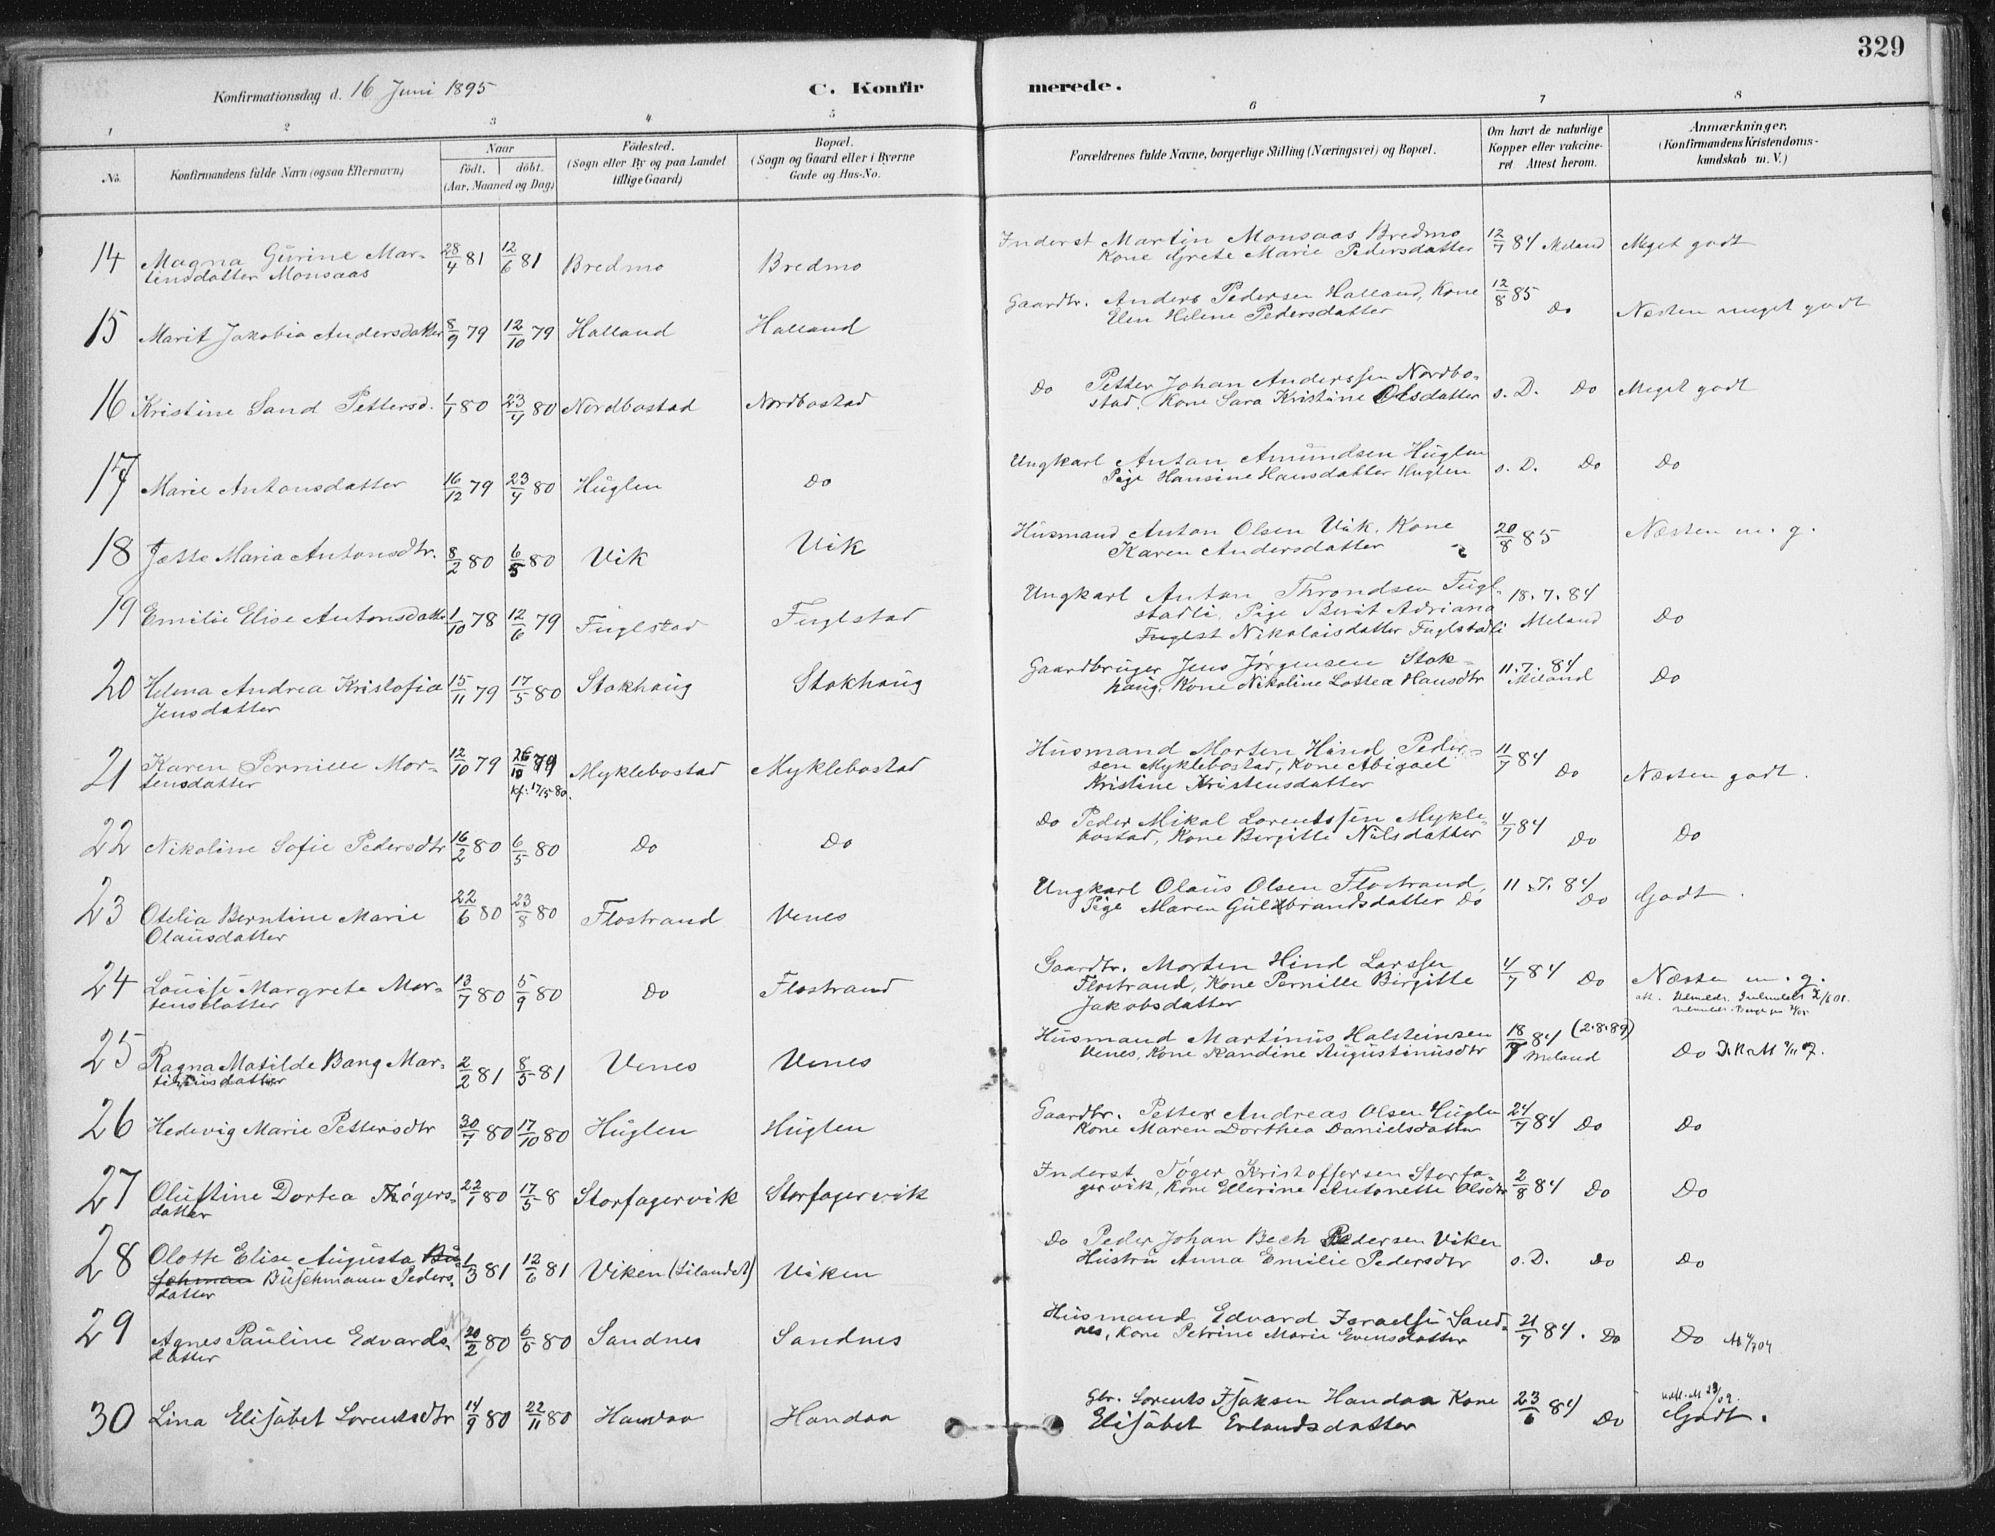 329
Konfirmationsdag d. 16 Juni 1895
C. Konfirmerede.
1 2 3 4 5 6 7 8
No.
Konfirmandens fulde Navn (ogsaa Efternavn)
Naar
født. døbt.
(Aar, Maaned og Dag)
Fødested.
(Sogn eller By og paa Landet
tillige Gaard)
Bopæl.
(Sogn og Gaard eller i Byerne
Gade og Hus-No.
Forældrenes fulde Navne, borgerlige Stilling (Næringsvei) og Bopæl.
Om havt de naturlige
Kopper eller vaccine-
ret Attest herom.
Anmærkninger.
(Konfirmandens Kristendoms-
kundskab m. V.)
14 Magna Gurine Mar- 28/4 81 12/6 81 Bredmo Bredmo Inderst Martin Monsaas Bredmo 12/7 84 Meland Meget godt
tensdatter Monsaas Kone Grete Marie Pedersdatter
15 Marit Jakobia Andersdatter 8/9 79 12/10 79 Halland Halland Gaardbr. Anders Pedersen Halland, Kone 12/8 85 Do Næsten meget godt
Elen Helene Pedersdatter
16 Kristine Sand Pettersd. 1/1 80 23/4 80 Nordbostad Nordbostad Do Petter Johan Anderssen Nordbo- s. D. Do Meget godt
stad, Kone Sara Kristine Olsdatter
17 Marie Antonsdatter 16/12 79 23/4 80 Huglen Do Ungkarl Anton Amundsen Huglen s. D. Do Do
Pige Hansine Hansdatter Huglen
18 Jette Maria Antonsdtr. 8/2 80 6/5 80 Vik Vik Husmand Anton Olsen Vik, Kone 20/8 85 Næsten m. g.
Karen Andersdatter
19 Emilie Elise Antonsdattr 1/10 78 12/6 79 Fuglstad Fuglstad Ungkarl Anton Throndsen Fugl- 18.7.84 Meland Do
stadli, Pige Berit Adriana
Fuglst Nikolaisdatter Fuglstadli
20 Helena Andrea Kristofia 15/11 79 17/5 80 Stokhaug Stokhaug Gaardbruger Jens Jørgensen Stok- 11.7.84 Meland Do
Jensdatter haug, Kone Nikoline Lottea Hansdtr
21 Karen Pernille Mor- 12/10 79 26/10 79 Myklebostad Myklebostad Husmand Morten Hind Peder- 11/7 84 Do Næsten godt.
tensdatter kf: 17/5 80. sen Myklebostad, Kone Abigael
Kristine Kristensdatter
22 Nikoline Sofie Pedersdtr 16/2 80 6/5 80 Do Do Do Peder Mikal Lorentssen Mykle- 4/7 84 Do Do
bostad, Kone Bergitte Nilsdatter
23 Otelia Berntine Marie 22/6 80 23/8 80 Flostrand Venes Ungkarl Olaus Olsen Flostrand, 11.7.84 Do Godt.
Olausdatter Pige Maren Guldbrandsdatter Do
24 Louise Margrete Mor- 13/7 80 5/9 80 Do Flostrand Gaardbr. Morten Hind Larssen 4/7 84 Do Næste m. g.
tensdatter Flostrand, Kone Pernille Birgitte
Jakobsdatter
25 Ragna Matilde Bang Mar- 2/2 81 8/5 81 Venes Venes Husmand Martinus Halsteinsen 18/7 84 (2.8.89) Meland Do
tinusdatter Venes, Kone Kandine Augustinusdtr
26 Hedevig Marie Pettersdtr 30/7 80 17/10 80 Huglen Huglen Gaardbr. Petter Andreas Olsen Huglen 24/7 84 Do Do
Kone Maren Dorthea Danielsdatter
27 Olustine Dortea Thøgers- 22/1 80 17/5 8 Storfagervik Storfagervik Inderst Tøger Kristoffersen Storfa- 2/8 84 Do Do
datter gervik, Kone Ellerine Antonette Olsdtr
28 Olotte Elise Augusta Bu- 1/3 81 12/6 81 Viken (Lilandet) Viken Do Peder Johan Bech Pedersen Viken s. D. Do Do
schman Buschmann Peders- Hustru Anna Emilie Pedersdtr
datter
29 Agnes Pauline Edvards- 20/2 80 6/5 80 Sandnes Sandnes Husmand Edvard Israelse Sand- 21/7 84. Do Do
datter nes, Kone Petrine Marie Evensdatter
30 Lina Elisabet Lorentsdtr 14/9 80 22/11 80 Handaa Handaa Gbr. Lorents Isaksen Handaa Kone 23/6 84 Do Godt.
Elisabet Erlandsdatter